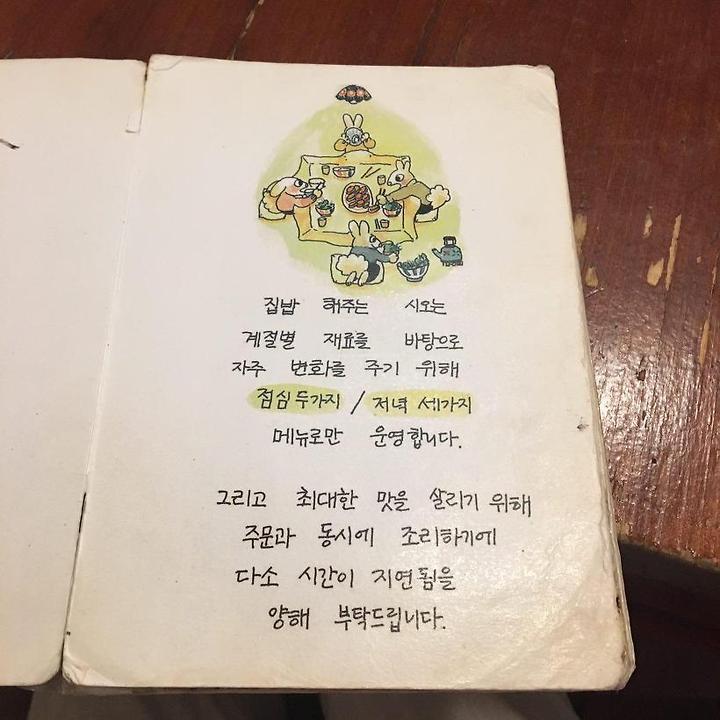 집밥 해주는 시오는
계절별 재료를 바탕으로
자주 변화를 주기 위해
점심 두가지 / 저녁 세가지
메뉴로만 운영합니다.
그리고 최대한 맛을 살리기 위해
주문과 동시에 조리하기에
다소 시간이 지연됨을
양해 부탁드립니다.